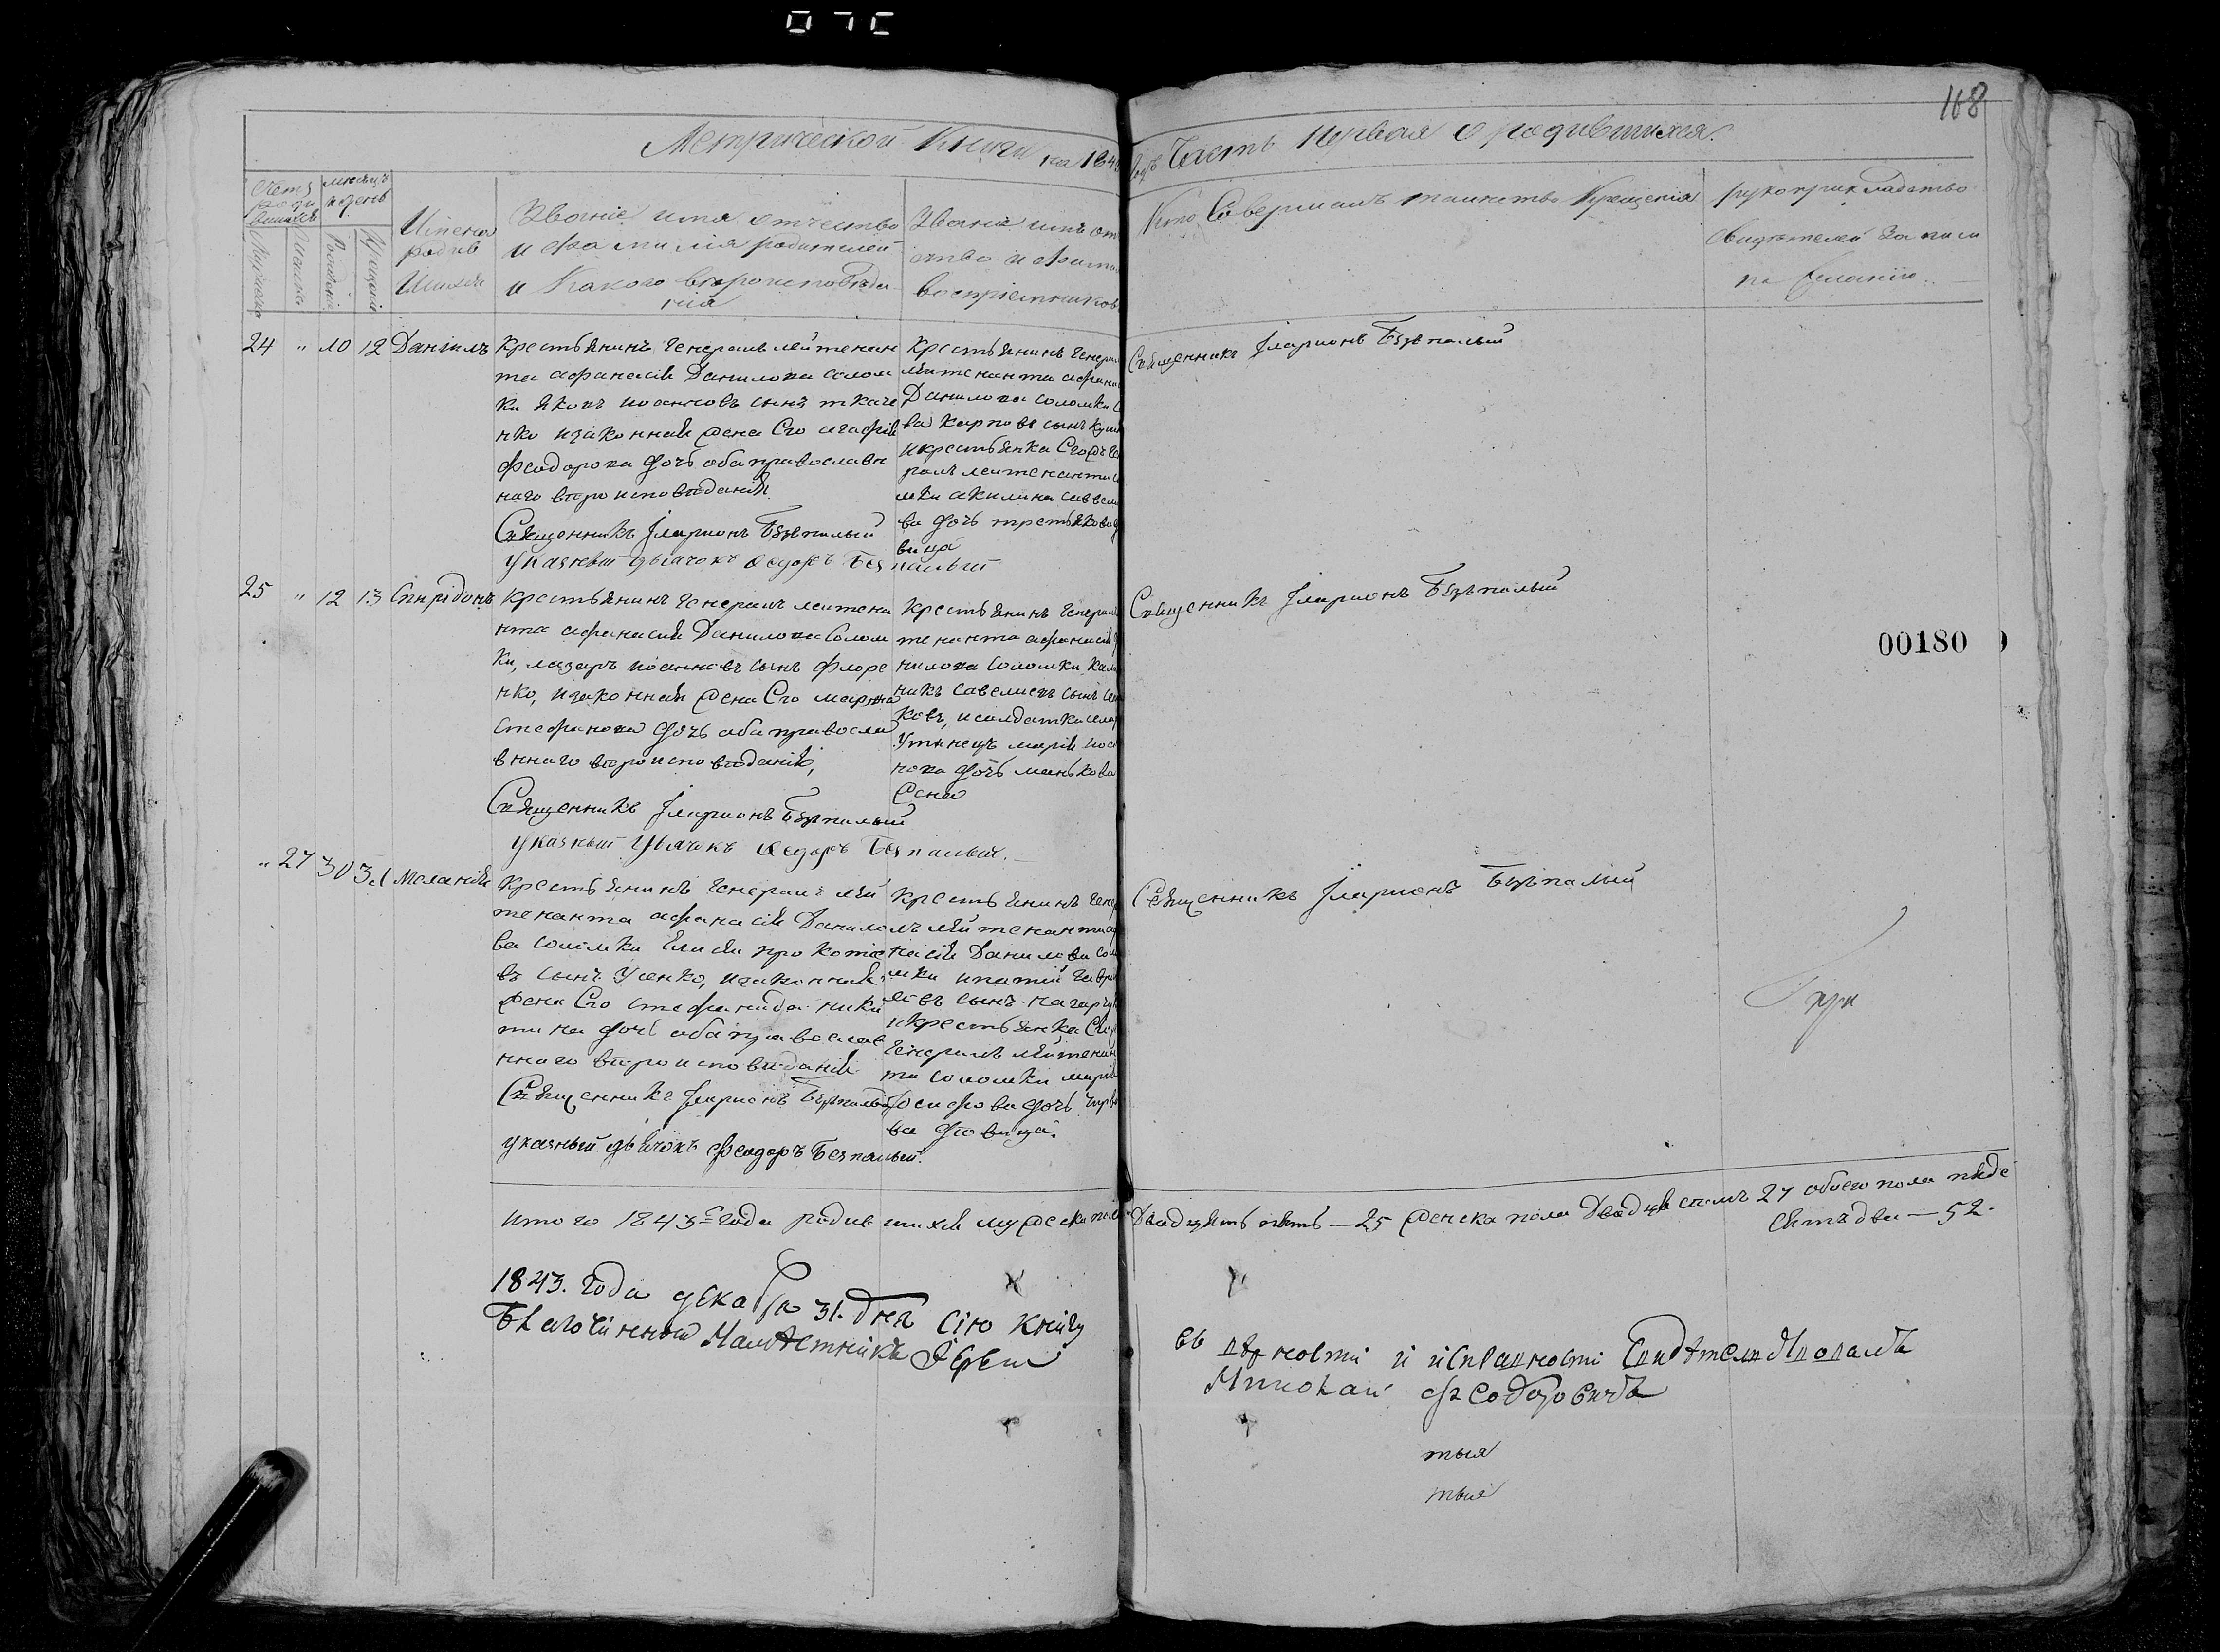 168
Метрической Книги на 1843 годъ Часть первая о родившихся.
Счетъ родившихся
Мужеска
Женска
месяцъ и день
Рожденія
Крещенія
Имена
родив
шихся
Званіе имя отчество
и фамилія родителей
и Какого вероисповеда
нія
Званіе имя от
чество и фами
воспріемников
Кто Совершалъ таинство Крещенія
рукоприкладство
свидетелей записи
по Желанію
24 " 10 12 Даніилъ
Крестьянинъ Генералъ лейтенан
та афанасія Данилова Солом
ки Яковъ иоанновъ сынъ ткаче
нко изаконная жена Его агафія
феодорова дочь оба православн
наго вероисповеданія
Священникъ Іларионъ Безпалый
Указный дьячокъ Федоръ Безпалый
Крестьянинъ Генерал
лейтенанта афана
Данилова соломки
ва карповъ сынъ
икрестьянка Егожъ Ге
ралъ лейтенанта
мки акилина савель
ва дочь
вица
Священникъ Іларионъ Безпалый
25 " 12 13 Спиридонъ
Крестьянинъ Генералъ лейтена
нта афанасія Данилова Солом
ки, лазарь иоанновъ сынъ флоре
нко, изаконная жена Его марина
стефанова дочь оба правосла
внаго вероисповеданія,
Священникъ Іларионъ Безпалый
Указный Дьячокъ Федоръ Безпалый.
Крестьянинъ Генерал
тенанта афанасія
нилова Соломки
никъ савелиевъ сынъ
ковъ, исолдатка
марія
нова дочь манькова
Жена
Священникъ Іларионъ Безпалый
00180
" 27 30 31 Меланія
Крестьянинъ Генералъ лей
тенанта афанасія Данило
ва соломки Елисей прокопіе
въ сынъ Усенко, изаконная
жена Его стефанида ники
тина дочь оба православ
ннаго вероисповеданія
Священникъ Іларионъ Безпалый
указный дьячокъ Феодоръ Безпалый.
Крестьянинъ Гене
лъ лейтенанта
насія Данилова соло
мки ипатій Гаври
ловъ сынъ
икрестьянка Его
Генералъ лейтенан
та соломки марія
Іосифова дочь
ва девица.
Священникъ Іларионъ Безпалый
итого 1843 года родившихся мужеска пола Двадцять пять — 25 женска пола Двадцять семъ 27 обоего пола пядe
сятъ два — 52.
1843. года декабря 31. дня Сію книгу въ верности и исправности Свидетельствовалъ
Благочинный Наместникъ Іерей Николай Феодоровичъ